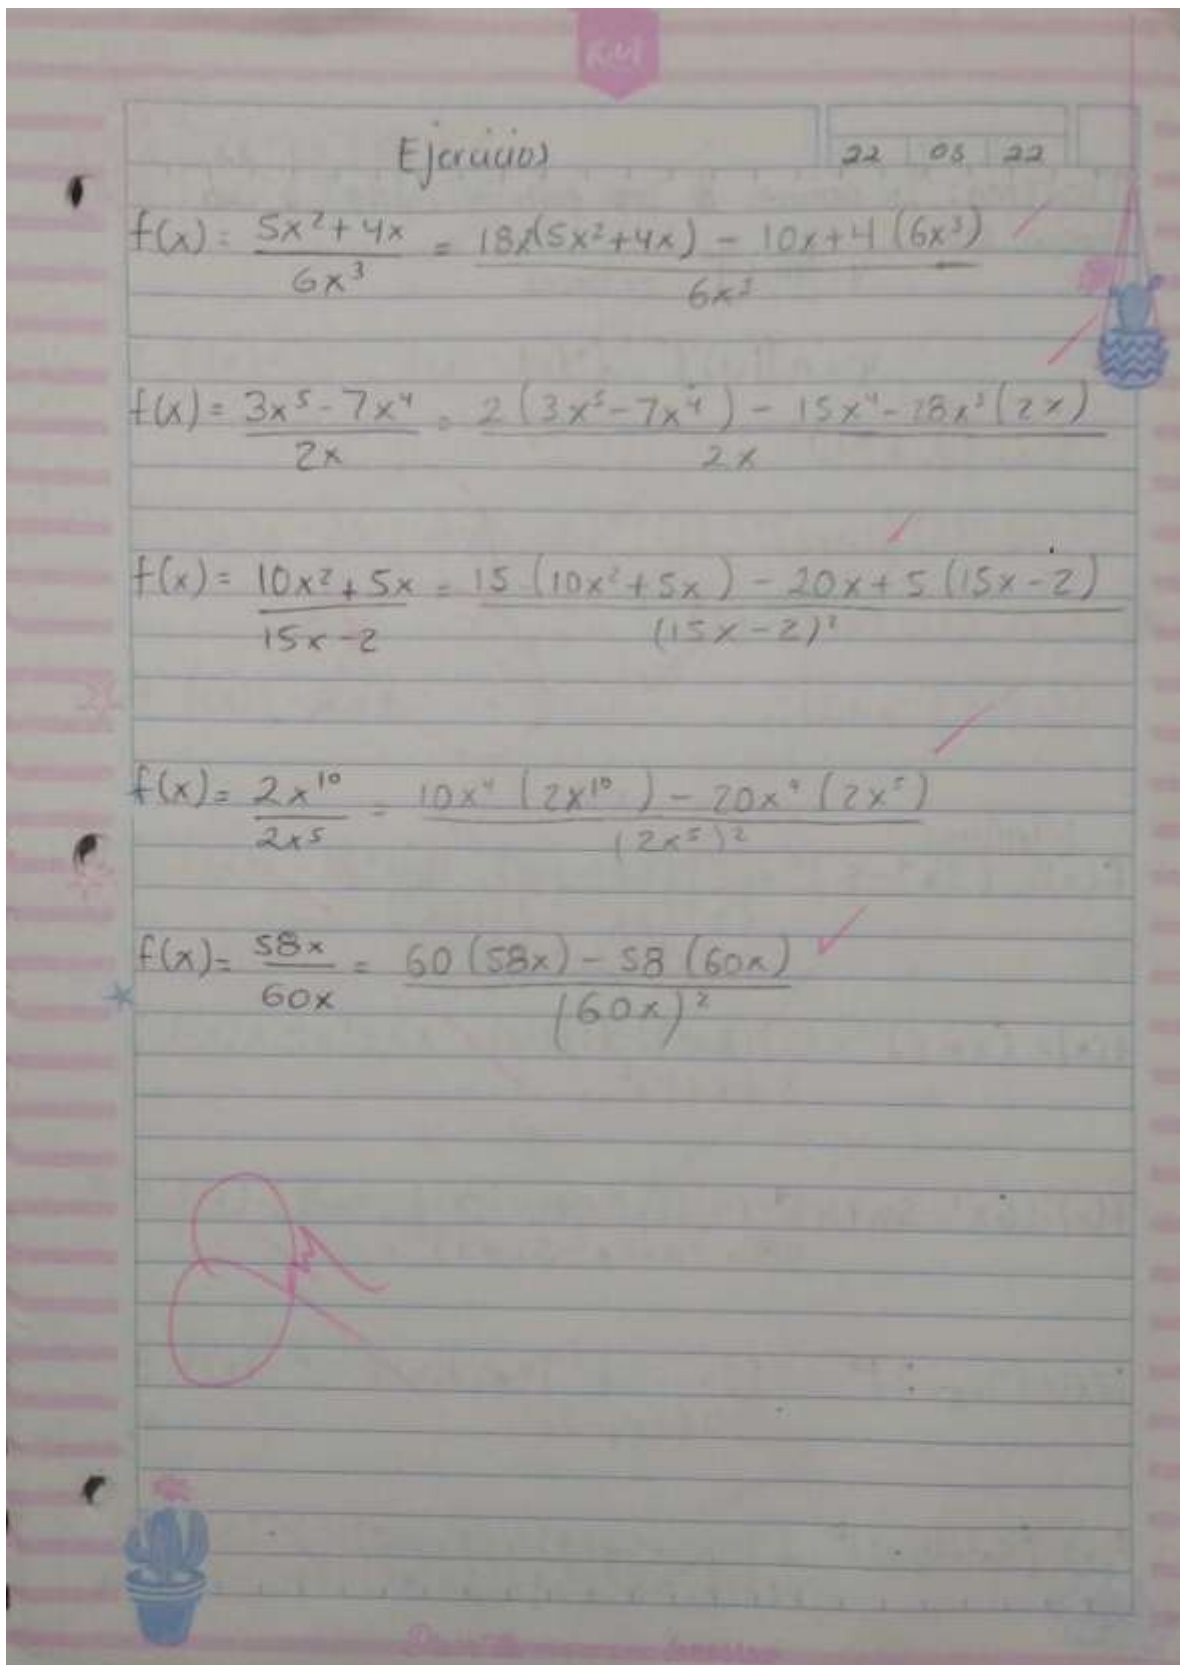 Ejercicios 22 03 22
f(x) = 5x² + 4x / 6x³ = 18x(5x² + 4x) - 10x + 4 (6x³) / 6x²
f(x) = 3x⁵ - 7x⁴ / 2x = 2 (3x⁵ - 7x⁴) - 15x⁴ - 28x³ (2x) / 2x
f(x) = 10x² + 5x / 15x - 2 = 15 (10x² + 5x) - 20x + 5 (15x - 2) / (15x - 2)²
f(x) = 2x¹⁰ / 2x⁵ = 10x⁴ (2x¹⁰) - 20x⁹ (2x⁵) / (2x⁵)²
f(x) = 58x / 60x = 60 (58x) - 58 (60x) / (60x)²